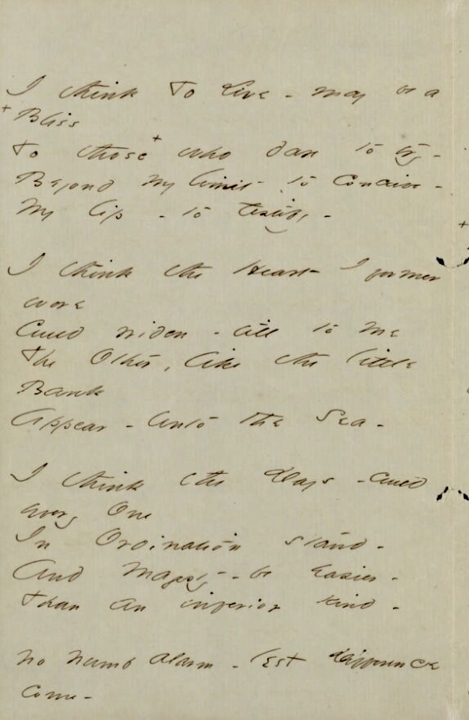 I think To Live - may be a
+ Bliss
To those + who dare to try -
Beyond my limit - to conceive -
My lip - to testify -
I think the Heart I former
wore
Could widen - till to me
The Other, like the little
Bank
Appear - unto the Sea -
I think the Days - could
every One
In Ordination stand -
And Majesty - be easier -
Than an inferior kind -
No numb alarm - lest Difference
come -